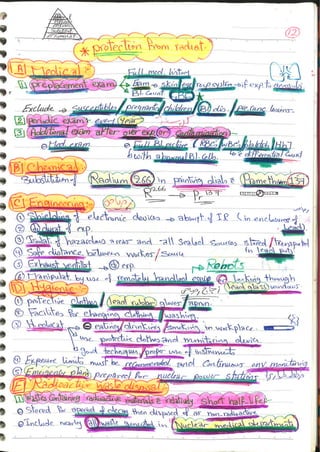 12
* protection from radiat.
A Medical
Full med. history
1 preplacement exam → Exam → skin
Bl. Count
Exclude → Susceptible / pregnant / children / Bl. dis
2 periodic exam: every year
3 Additional exam after over exp. (or contamination)
→ Med. exam → Full Bl. picture (RBCs, WBCs, platelets, Hb)
with abnormal Bl. cells & differential count
B Chemical
Substitution of Radium 266 in painting dials by Promethium 137
R 266 → P 137
C Engineering
① Shielding of electronic devices → absorpt. of IR (in enclosure of lead)
② exp.
③ hazardous areas and all sealed sources stored / transported in lead pots
④ Safe distance between worker / source
⑤ Exhaust ventilat. → exp. → Robots
⑥ Manipulat. by use of remotely handled equip. & looking through lead glass windows
D Hygiene
① protective clothes / Lead rubber gloves / apron.
② Facilities for changing clothing / washing
③ eating / drinking / smoking in workplace.
use protective clothes and monitoring device
good techniques / proper use of instruments
④ Exposure limits must be recommended and continuous env. monitoring
⑤ Emergency plan prepared for nuclear power stations
E Radioactive waste disposal
1 Wastes containing radioactive materials & relatively short half life:
Stored for a period of decay then disposed of as non radioactive
Include nearly all waste generated in Nuclear medical departments